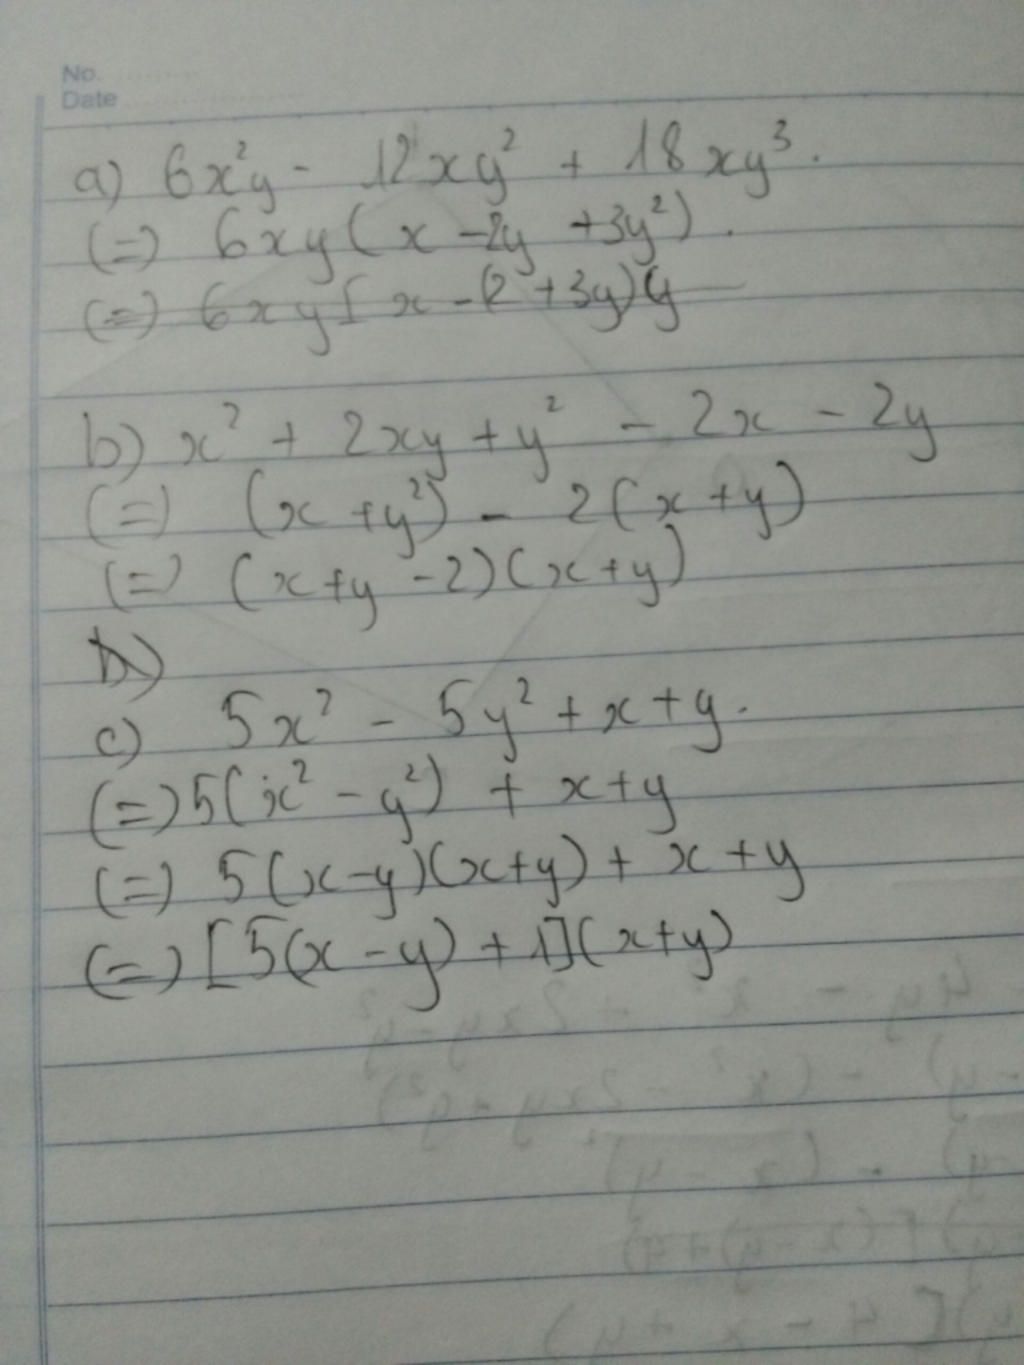 No.
Date
a) 6x²y - 12xy² + 18xy³.
(=) 6xy(x -2y +3y²).
(=) 6xy[x -(2 +3y)y
b) x² + 2xy + y² - 2x - 2y
(=) (x +y²) - 2(x +y)
(=) (x+y -2)(x+y)
b)
c) 5x² - 5y² + x + y.
(=) 5(x² - y²) + x+y
(=) 5(x-y)(x+y) + x +y
(=) [5(x-y) + 1](x+y)